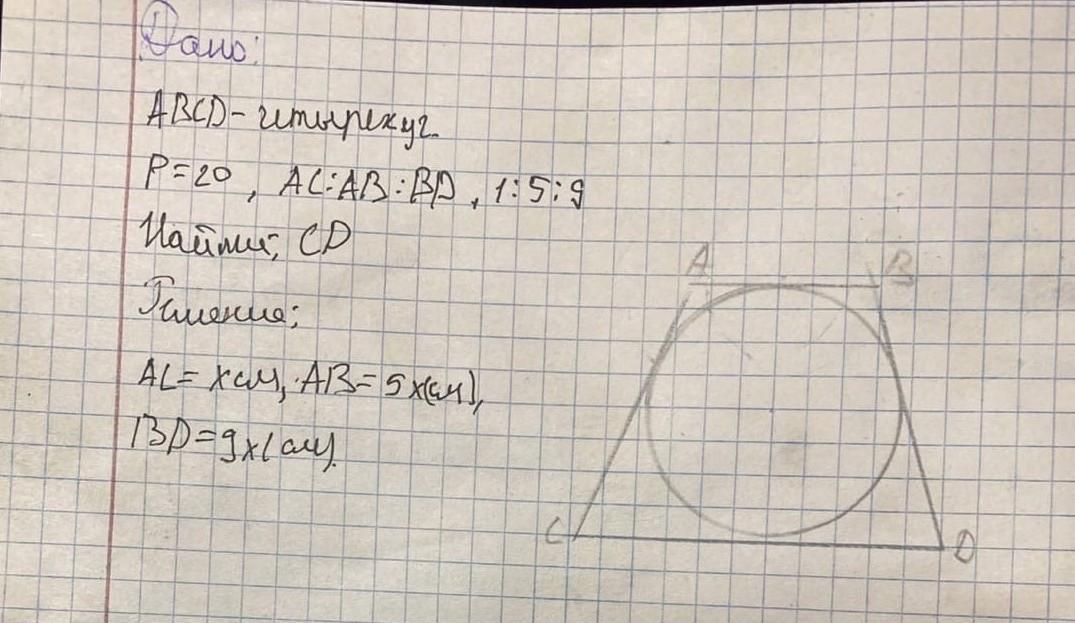 Дано:
ABCD - четырехуг.
P=20, AC:AB:BD, 1:5:9
Найти; CD
Решение:
AC= x см, AB= 5x(см),
BD=9x(см).
A
B
C
D